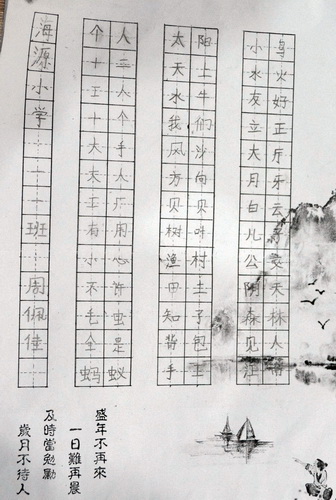 海源小学 一十一班 周佩佳
个人
十二
工人
十个
大手
夫人
工厂
有用
小心
不许
毛虫
全是
蚂蚁
太阳
天土
水牛
我们
风沙
方向
贝贝
树叶
渔村
田土
知子
背包
手工
小鸟
水火
友好
立正
大厅
月牙
白云
儿
公
阴天
森林
见人
江
盛年不再來
一日難再晨
及時當勉勵
歲月不待人